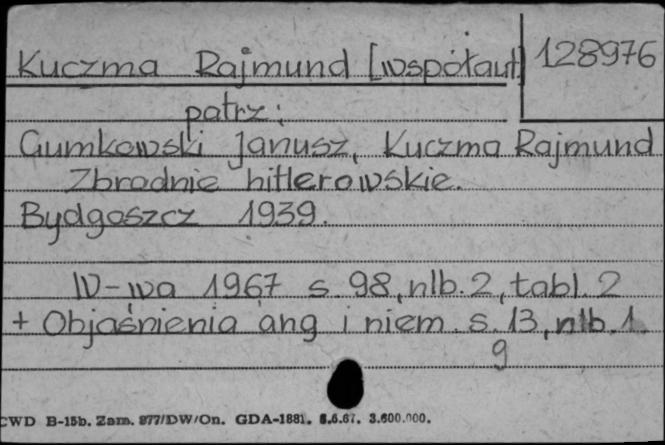 Kuczma Rajmund [współaut] 128976
patrz:
Gumkowski Janusz, Kuczma Rajmund
Zbrodnie hitlerowskie.
Bydgoszcz 1939.
W-wa 1967 s 98, nlb. 2, tabl. 2
+ Objaśnienia ang i niem. s. 13, nlb. 1
9
CWD B-15b. Zam. 877/DW/On. GDA-1881. 6.6.67. 3.600.000.